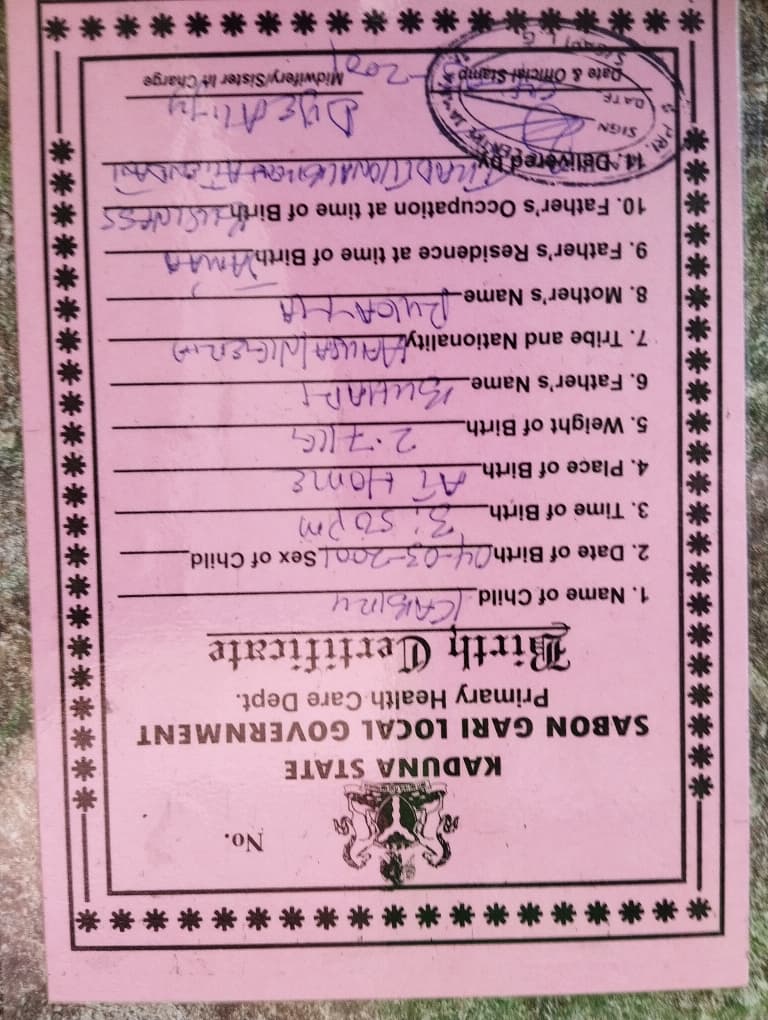 No.
KADUNA STATE
SABON GARI LOCAL GOVERNMENT
Primary Health Care Dept.
Birth Certificate
1. Name of Child KABIRU
2. Date of Birth 04-03-2001 Sex of Child
3. Time of Birth 3:50pm
4. Place of Birth AT HOME
5. Weight of Birth 2.7KG
6. Father's Name BUHARI
7. Tribe and Nationality HAUSA/NIGERIA
8. Mother's Name RUKAYYA
9. Father's Residence at time of Birth
10. Father's Occupation at time of Birth BUSINESS
11. Delivered by TRADITIONAL BIRTH ATTENDANT
SIGN
DATE
Midwifery/Sister In Charge
Date & Official Stamp